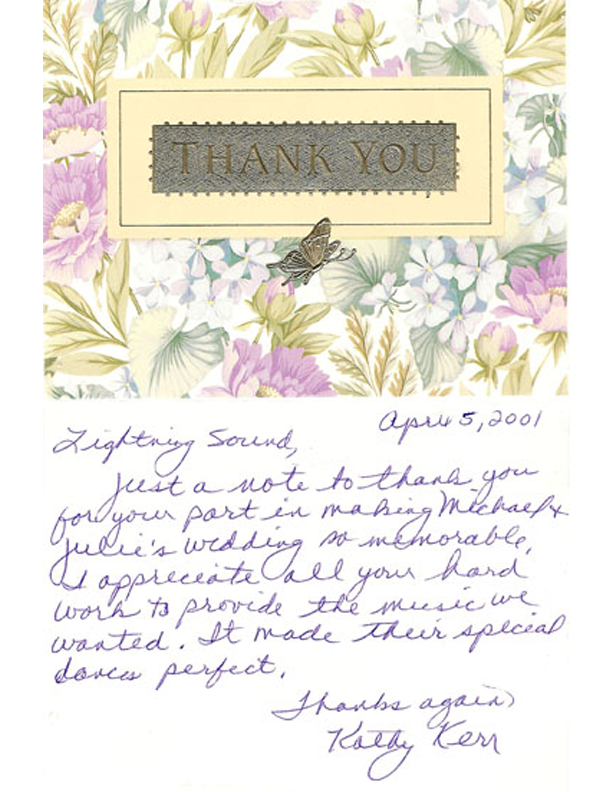 THANK YOU
April 5, 2001
Lightning Sound,
Just a note to thank you
for your part in making Michael &
Julie's wedding so memorable.
I appreciate all your hard
work to provide the music we
wanted. It made their special
dances perfect.
Thanks again,
Kathy Kerr